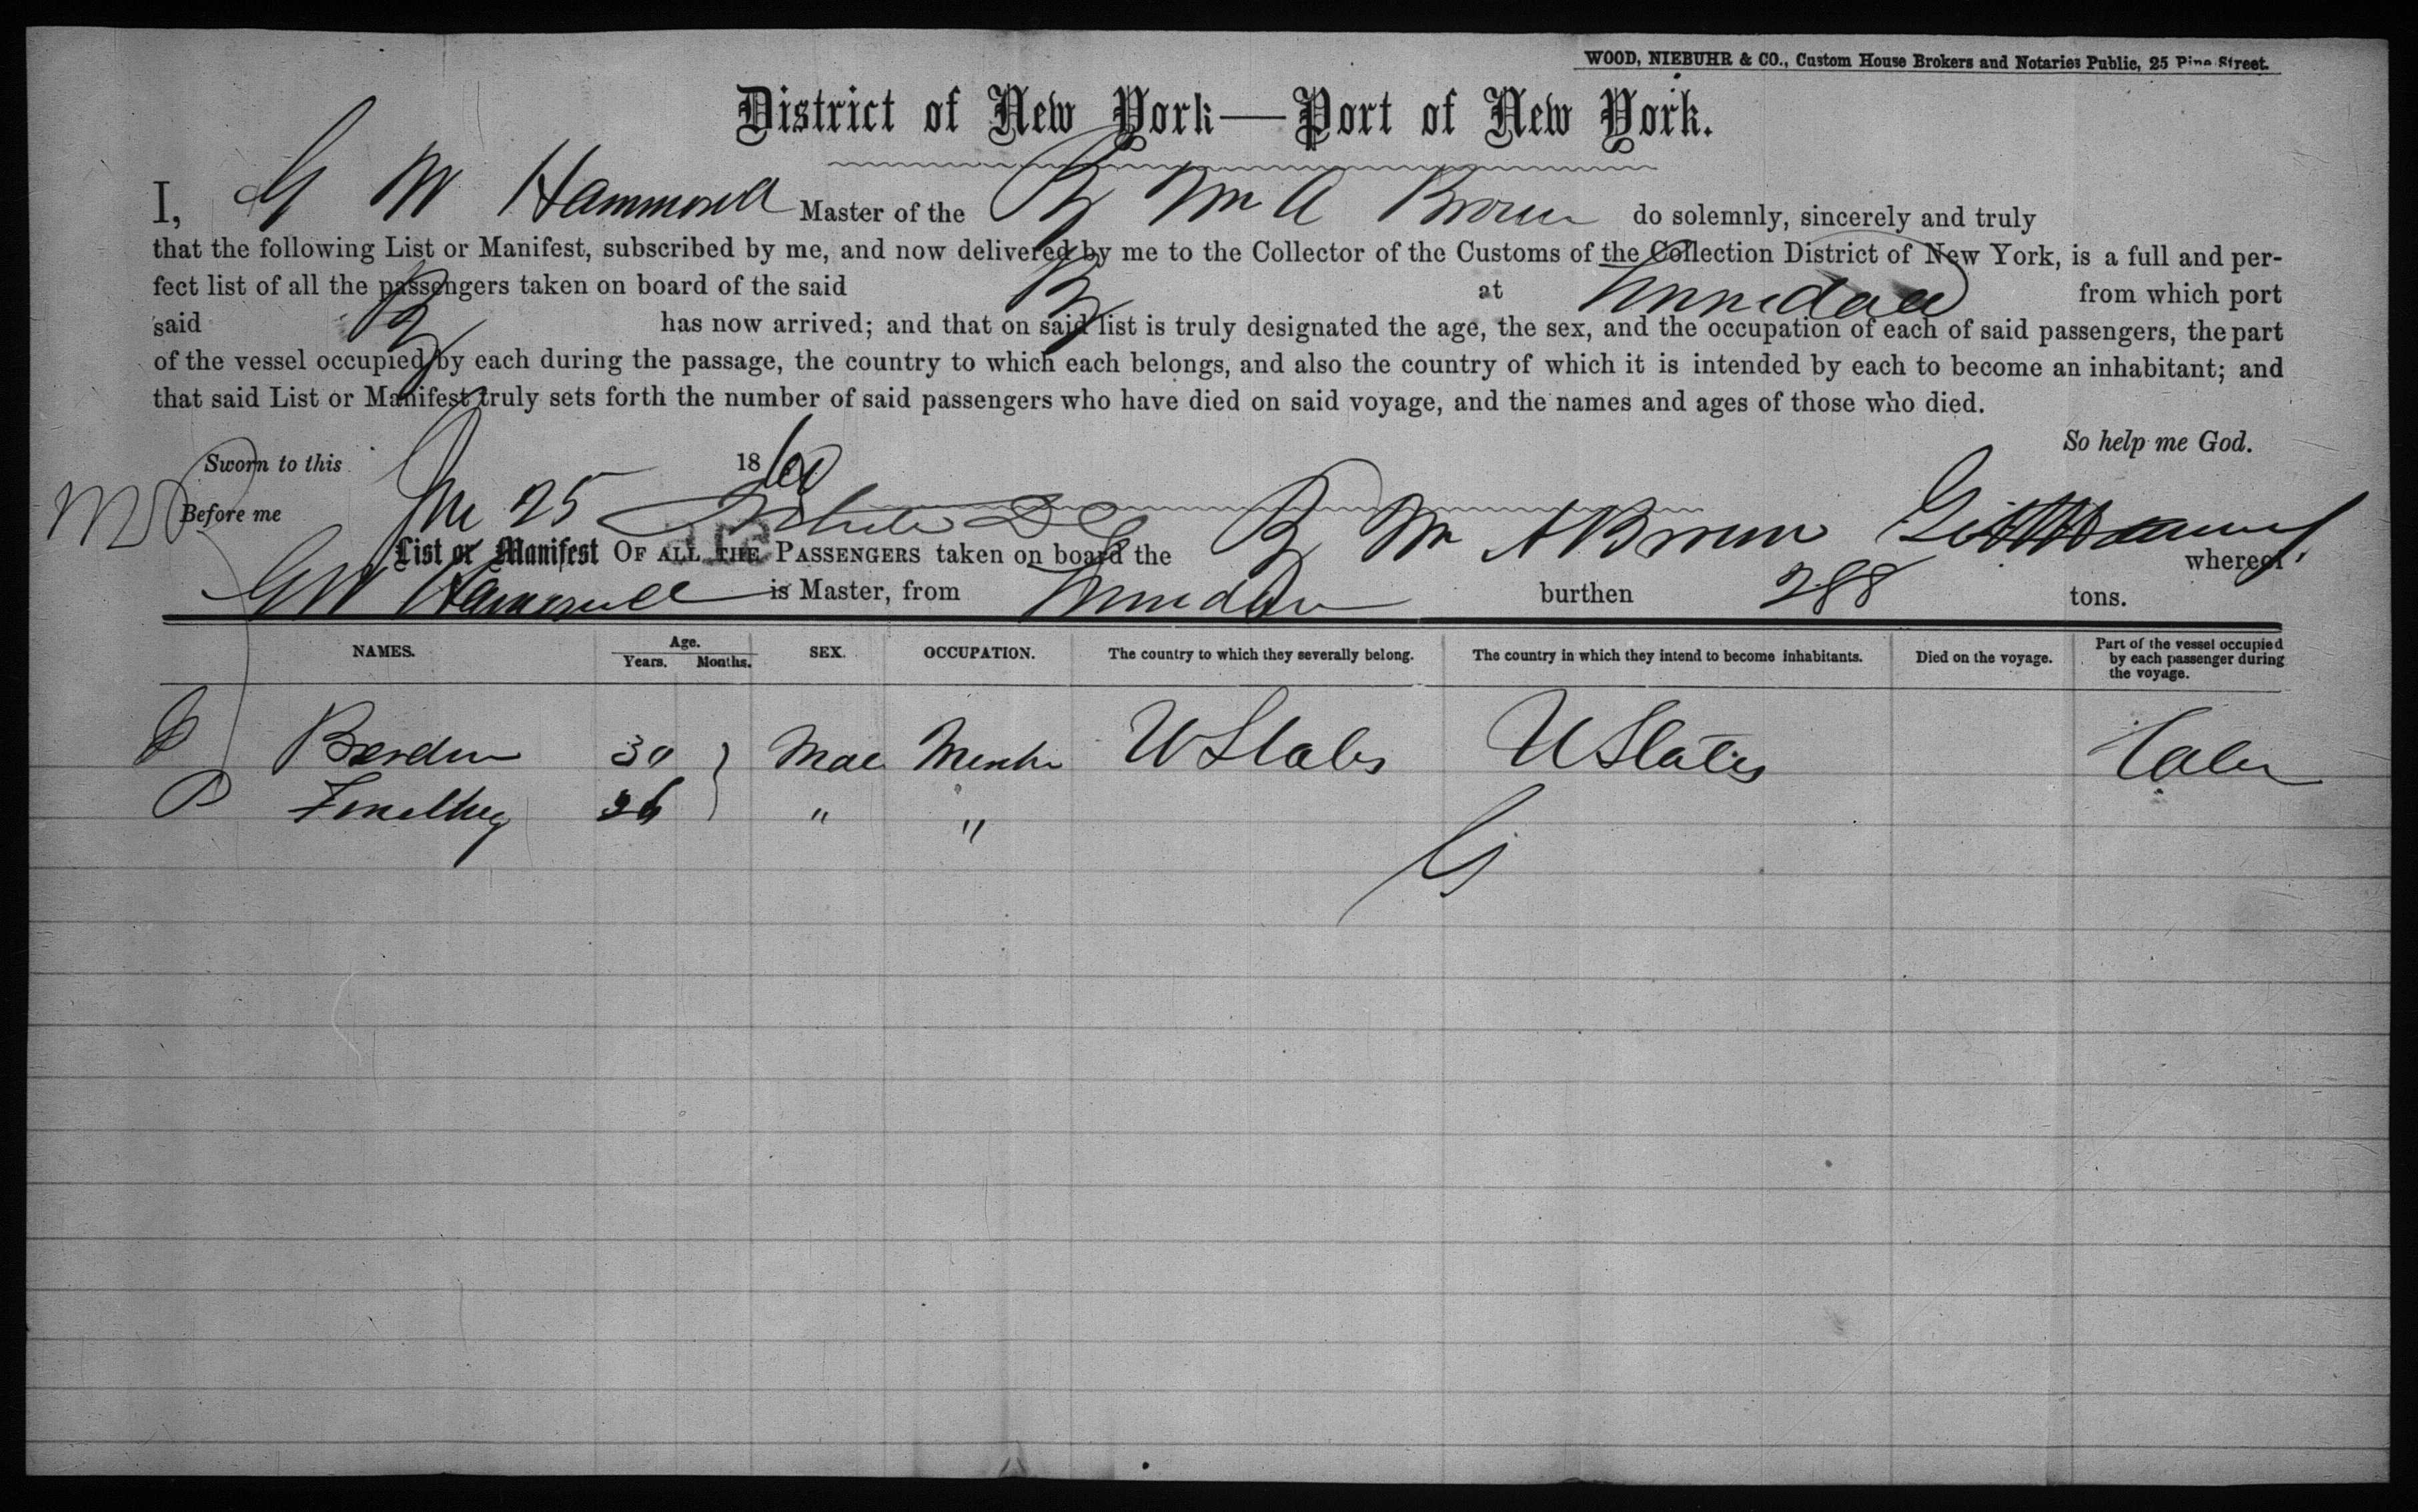 WOOD, NIEBUHR & CO., Custom House Brokers and Notaries Public, 25 Pine Street.
District of New York—Port of New York.
I, G W Hammond Master of the B Wm A Brown do solemnly, sincerely and truly
that the following List or Manifest, subscribed by me, and now delivered by me to the Collector of the Customs of the Collection District of New York, is a full and per-
fect list of all the passengers taken on board of the said B at from which port
said B has now arrived; and that on said list is truly designated the age, the sex, and the occupation of each of said passengers, the part
of the vessel occupied by each during the passage, the country to which each belongs, and also the country of which it is intended by each to become an inhabitant; and
that said List or Manifest truly sets forth the number of said passengers who have died on said voyage, and the names and ages of those who died.
So help me God.
Sworn to this 25 1860
Before me
List or Manifest OF ALL THE PASSENGERS taken on board the B Wm A Brown whereof
G W Hammond is Master, from burthen 288 tons.
NAMES. Age. Years. Months. SEX. OCCUPATION. The country to which they severally belong. The country in which they intend to become inhabitants. Died on the voyage. Part of the vessel occupied by each passenger during the voyage.
30 U States U States
26 " "